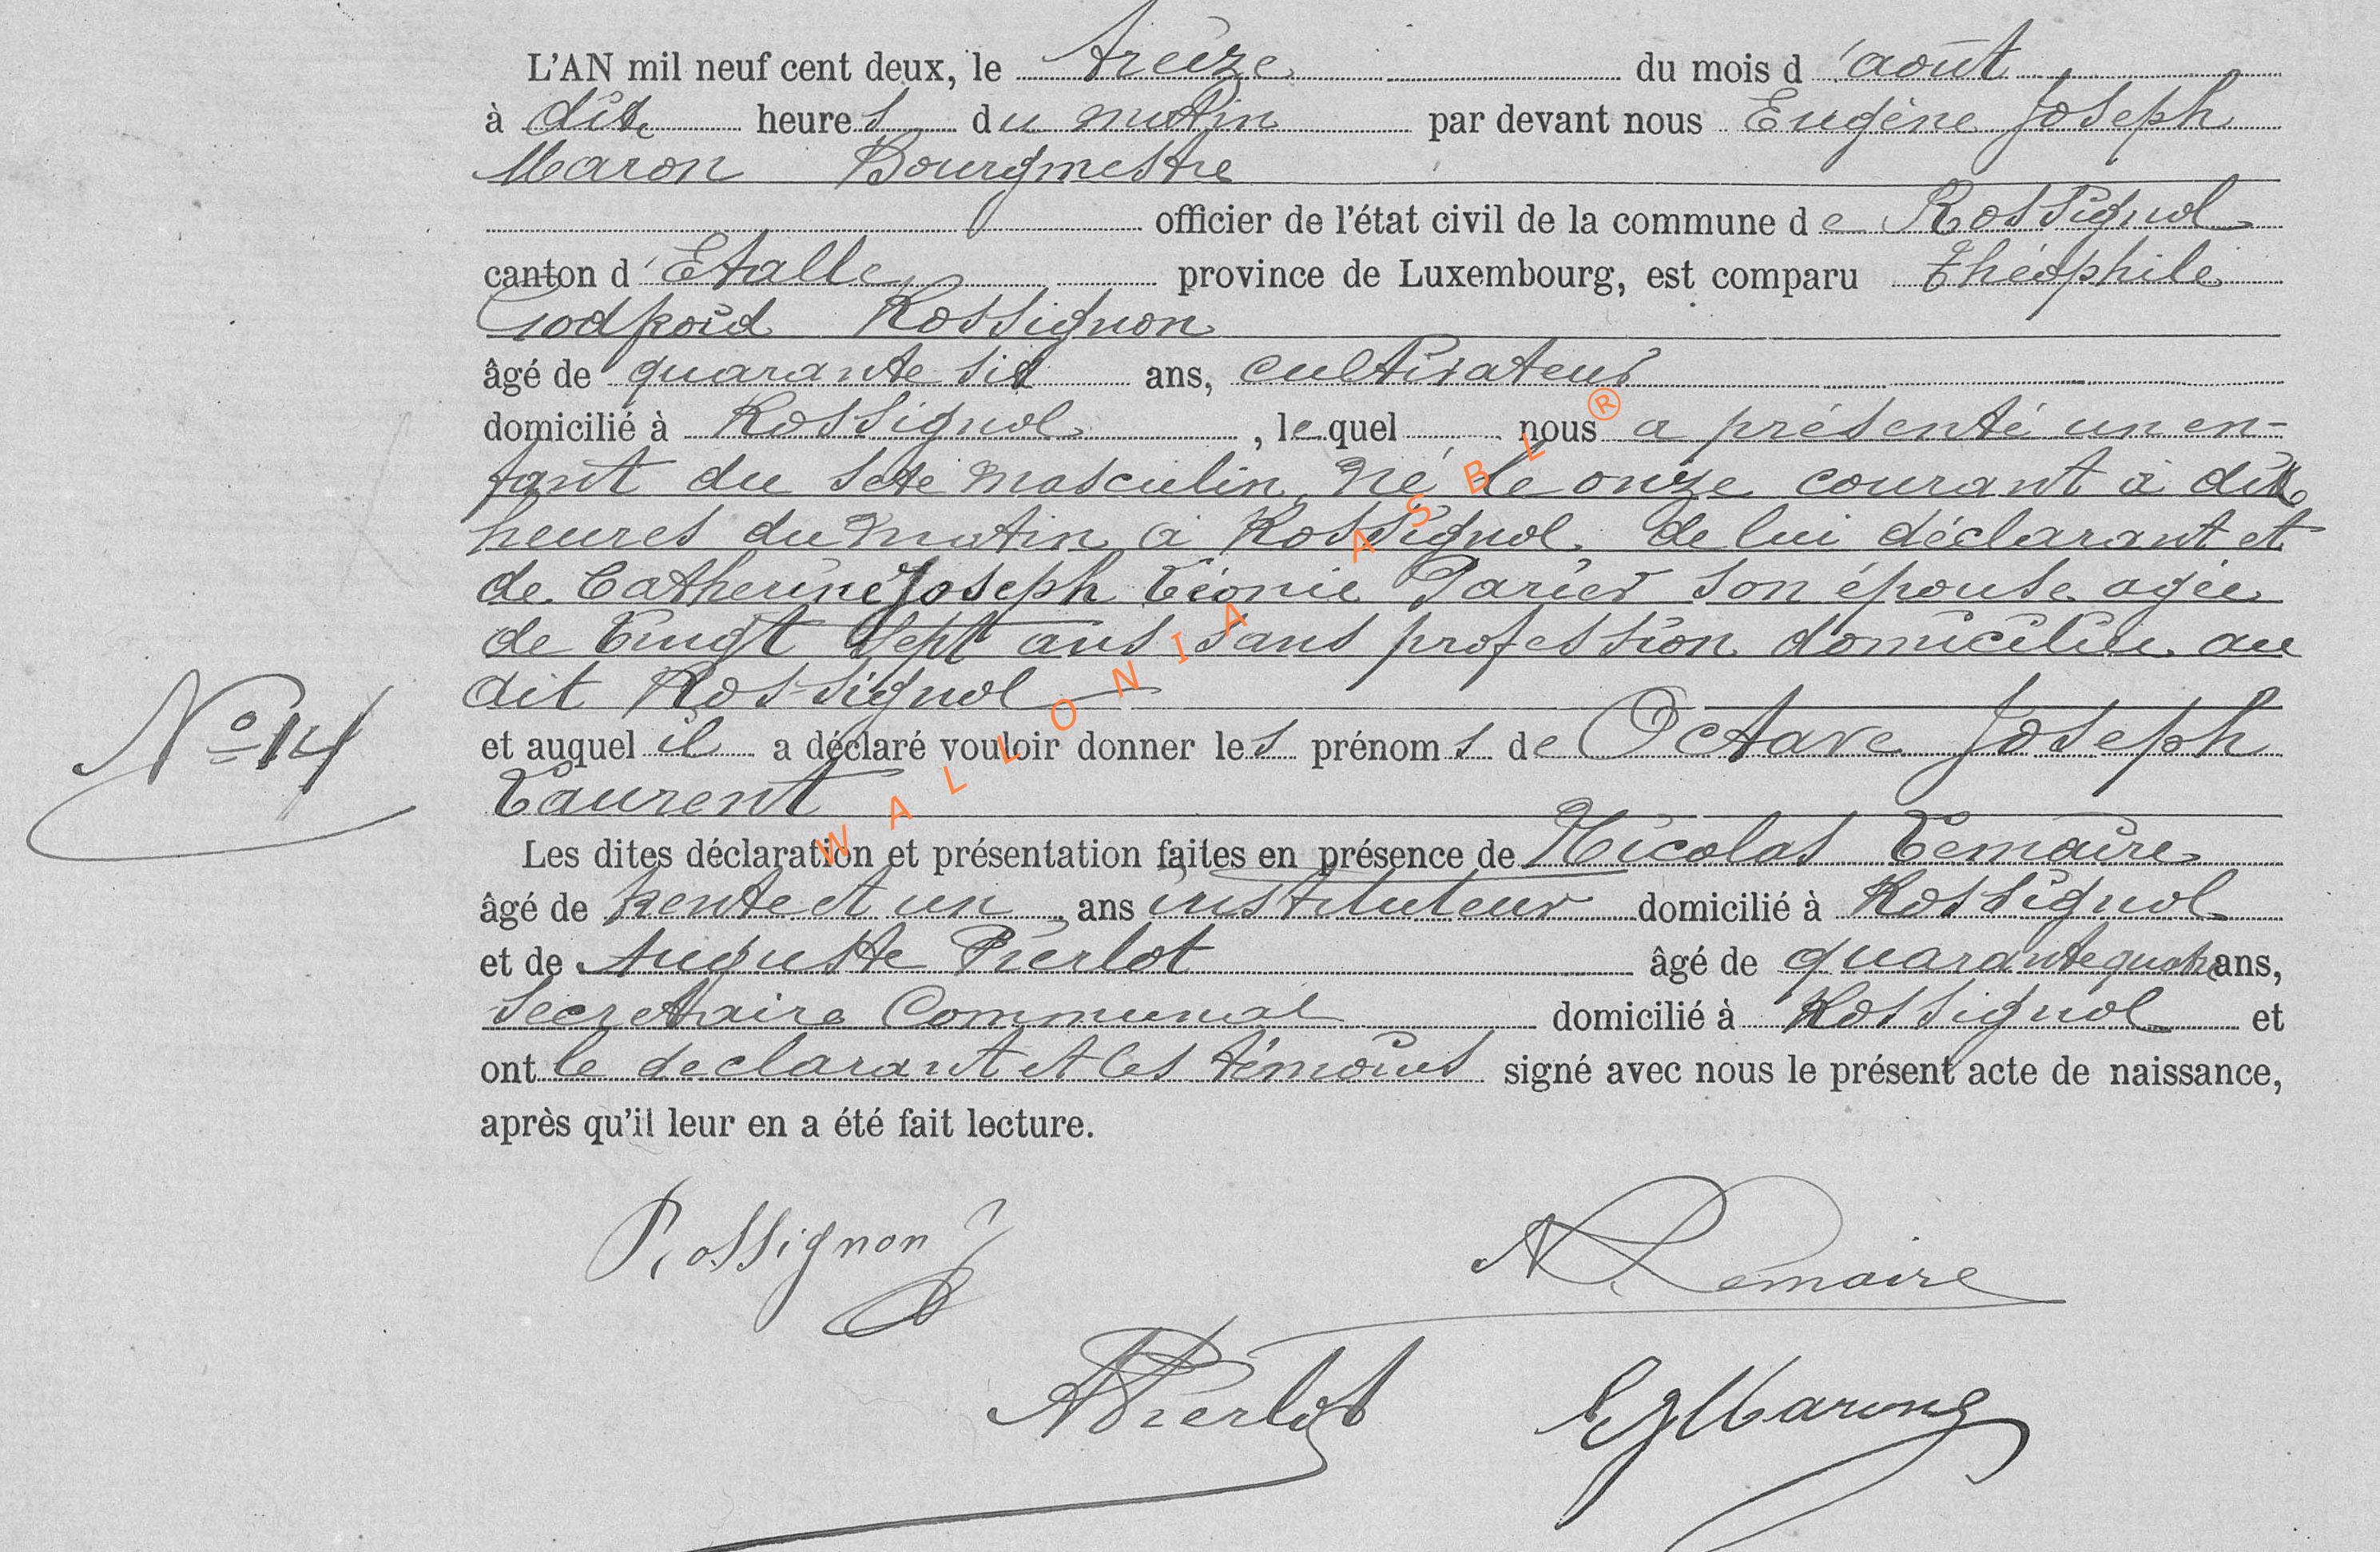 L'AN mil neuf cent deux, le treize du mois d'août
à dix heures du matin par devant nous Eugène Joseph
Maron Bourgmestre
officier de l'état civil de la commune de Rossignol
canton d'Etalle province de Luxembourg, est comparu Théophile
Godfroid Rossignon
âgé de quarante six ans, cultivateur
domicilié à Rossignol, lequel nous a présenté un en-
fant du sexe masculin, né le onze courant à dix
heures du matin à Rossignol de lui déclarant et
de Catherine Joseph Léonie Parier son épouse agée
de vingt sept ans sans profession domiciliée au
dit Rossignol
N° 14
et auquel il a déclaré vouloir donner les prénoms de Octave Joseph
Laurent
Les dites déclaration et présentation faites en présence de Nicolas Lemaire
âgé de trente et un ans instituteur domicilié à Rossignol
et de Auguste Pierlot âgé de quarante quatre ans,
secretaire Communal domicilié à Rossignol et
ont le declarant et les témoins signé avec nous le présent acte de naissance,
après qu'il leur en a été fait lecture.
Rossignon T
N Lemaire
A Pierlot
EJ Maron
WALLONIA ASBL ®